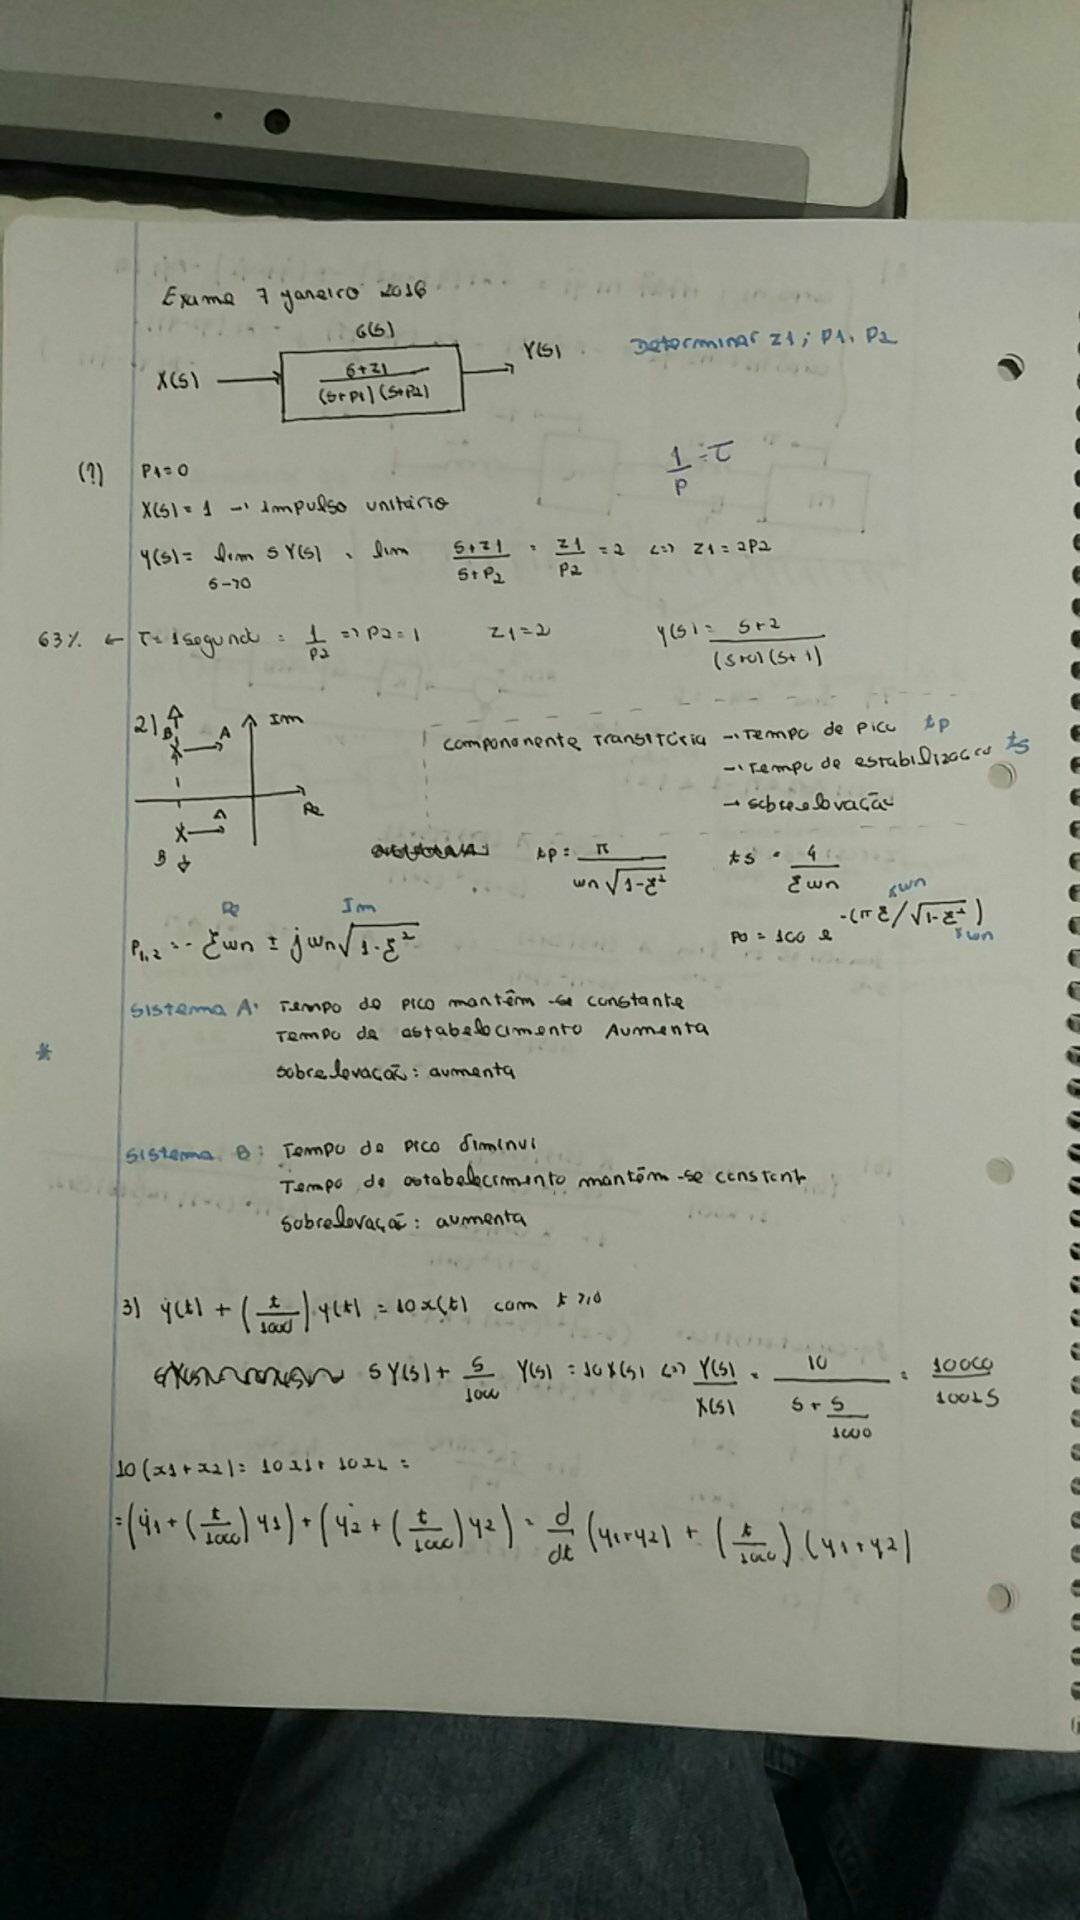 Exame 7 janeiro 2016
G(s)
X(s) → (s+z1)/((s+p1)(s+p2)) → Y(s)
Determinar z1, p1, p2
(?) P1=0
1/P = τ
X(s) = 1 → impulso unitário
y(s) = lim s→0 s Y(s) = lim (s+z1)/(s+P2) = z1/P2 = 2 <=> z1 = 2P2
63% ← τ = 1 segund = 1/P2 => P2 = 1 z1 = 2 y(s) = (s+2)/((s+0)(s+1))
2) B A Im
Re
A
B
componente transitória → Tempo de pico tp
→ Tempo de estabilização ts
→ sobreelevação
tp = π/(wn √(1-ξ²)) ts = 4/(ξwn)
Re Im
P1,2 = - ξwn ± jwn√(1-ξ²)
PO = 100 e -(πξ/√(1-ξ²)) xwn xwn
Sistema A: Tempo de pico mantêm-se constante
Tempo de estabelecimento Aumenta
*
sobrelevação: aumenta
Sistema B: Tempo de pico diminui
Tempo de estabelecimento mantêm-se constant
sobrelevação: aumenta
3) ẏ(t) + (t/1000) y(t) = 10x(t) com t ≥ 0
sY(s) + s/1000 Y(s) = 10X(s) <=> Y(s)/X(s) = 10/(s + s/1000) = 10000/1001s
10(x1+x2) = 10x1 + 10x2 =
= (ẏ1 + (t/1000) y1) + (ẏ2 + (t/1000) y2) = d/dt (y1+y2) + (t/1000) (y1+y2)